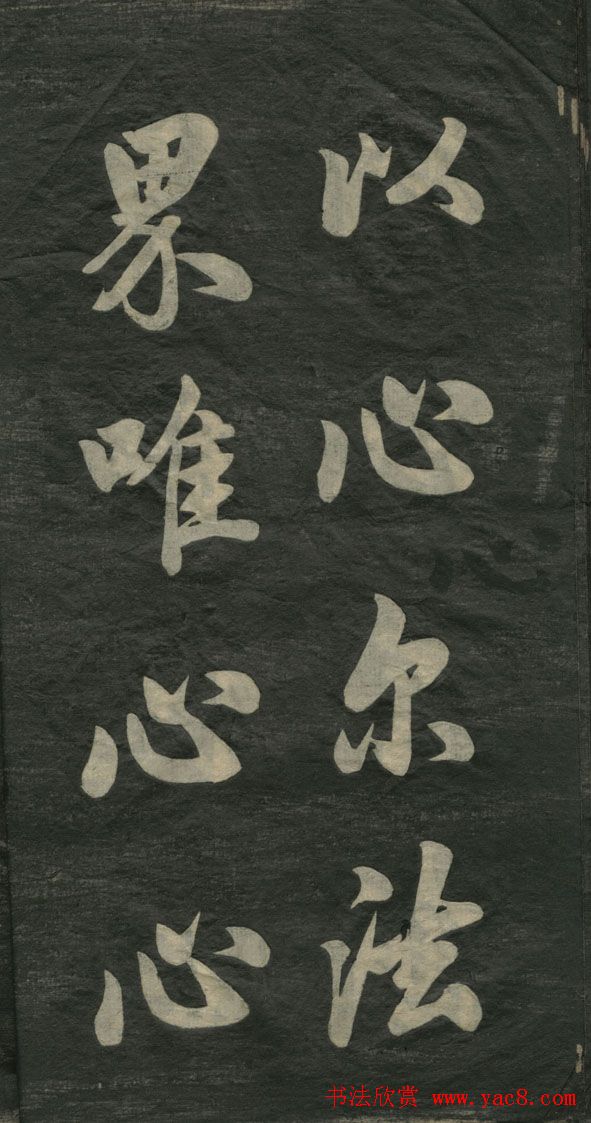 以心尔法
界唯心心
书法欣赏 www.yac8.com